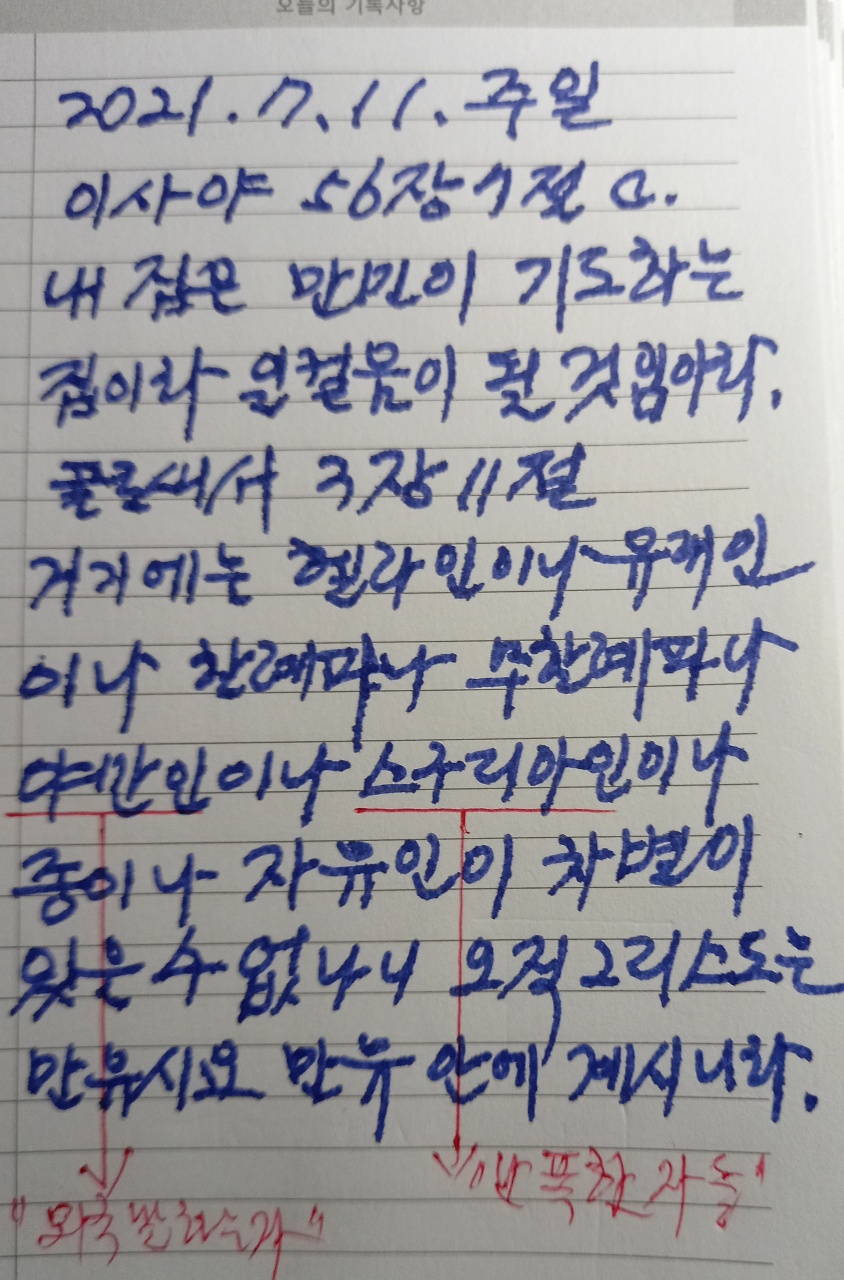 오늘의 기록사항
2021. 7. 11. 주일
이사야 56장 7절 C.
내 집은 만민이 기도하는
집이라 일컬음이 될 것임이라.
골로새서 3장 11절
거기에는 헬라인이나 유대인
이나 할례파나 무할례파나
야만인이나 스구디아인이나
종이나 자유인이 차별이
있을 수 없나니 오직 그리스도는
만유시요 만유 안에 계시니라.
"난폭한 자들"
"외국 말하는자"